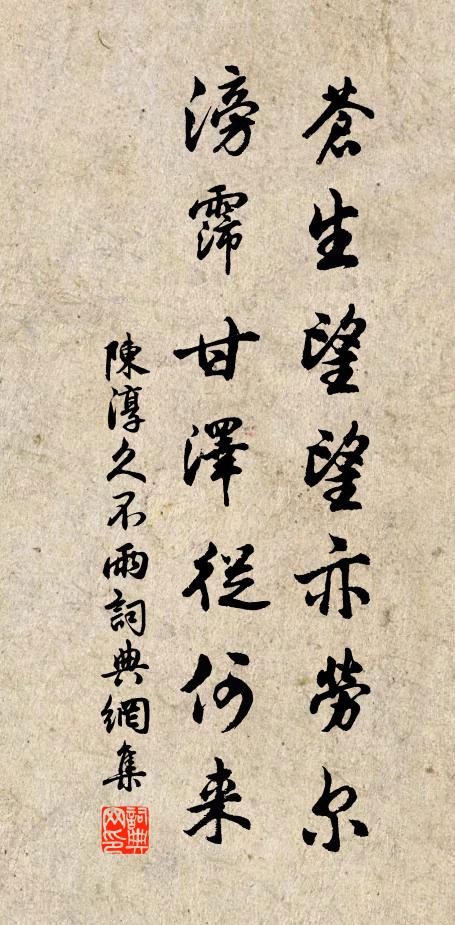 蒼生望望亦勞尔
滂霈甘澤從何来
陳淳久不雨詞典網集
詞典网印